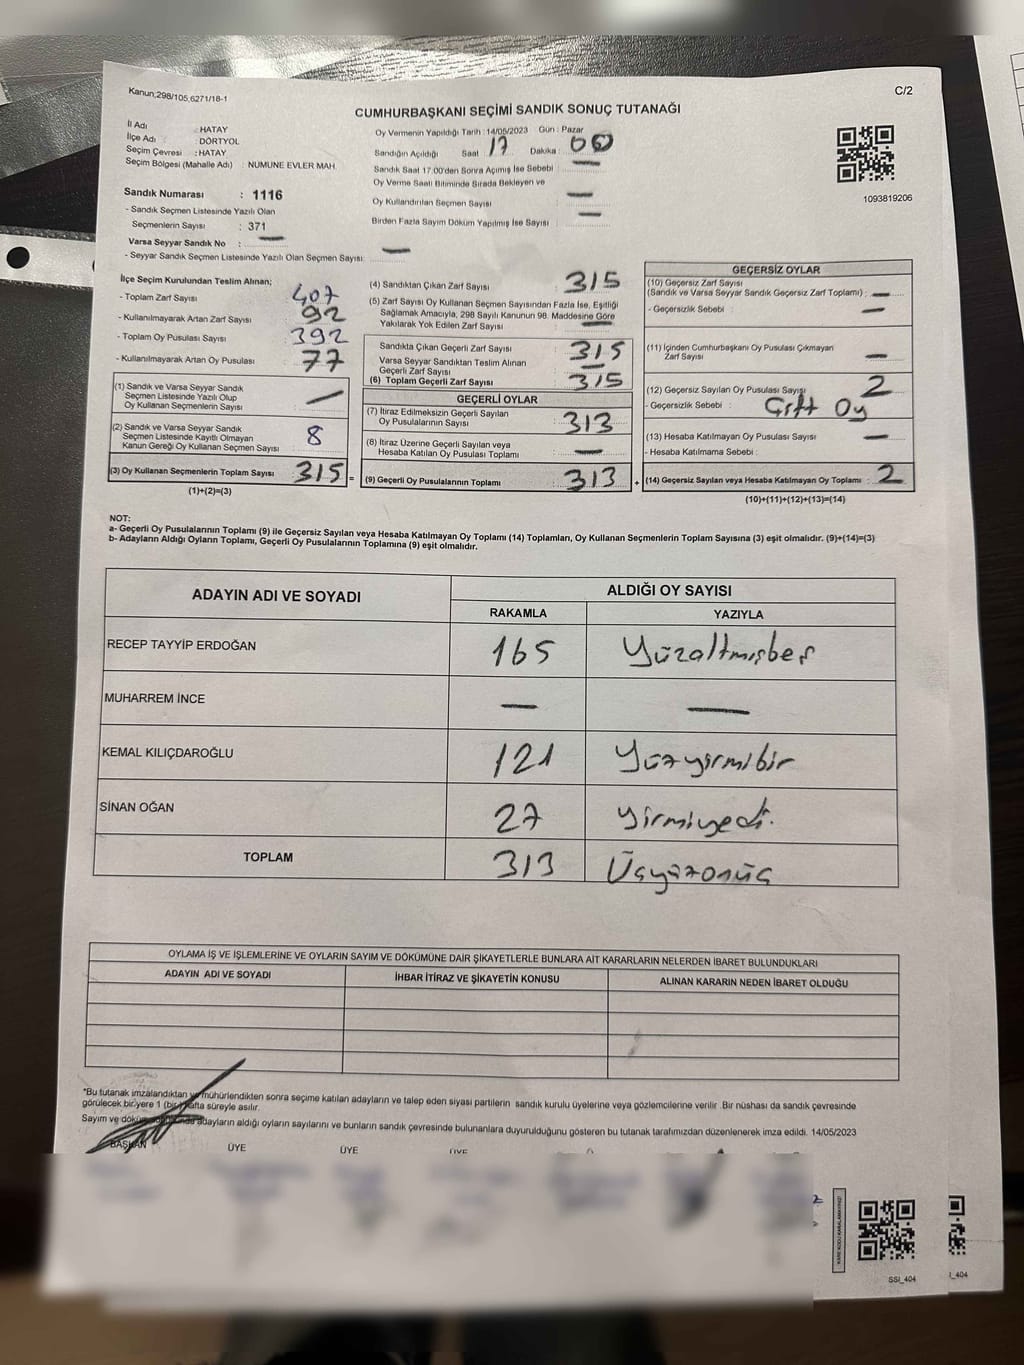 Kanun,298/105,6271/18-1
C/2
CUMHURBAŞKANI SEÇİMİ SANDIK SONUÇ TUTANAĞI
İl Adı : HATAY
İlçe Adı : DÖRTYOL
Seçim Çevresi : HATAY
Seçim Bölgesi (Mahalle Adı) : NUMUNE EVLER MAH.
Sandık Numarası : 1116
- Sandık Seçmen Listesinde Yazılı Olan
Seçmenlerin Sayısı : 371
Varsa Seyyar Sandık No : —
- Seyyar Sandık Seçmen Listesinde Yazılı Olan Seçmen Sayısı: —
Oy Vermenin Yapıldığı Tarih : 14/05/2023 Gün : Pazar
Sandığın Açıldığı Saat 17 Dakika : 00
Sandık Saat 17:00'den Sonra Açımış İse Sebebi : —
Oy Verme Saati Bitiminde Sırada Bekleyen ve
Oy Kullandırılan Seçmen Sayısı : —
Birden Fazla Sayım Döküm Yapılmış İse Sayısı : —
1093819206
İlçe Seçim Kurulundan Teslim Alınan;
- Toplam Zarf Sayısı 407
- Kullanılmayarak Artan Zarf Sayısı : 92
- Toplam Oy Pusulası Sayısı : 392
- Kullanılmayarak Artan Oy Pusulası : 77
(1) Sandık ve Varsa Seyyar Sandık
Seçmen Listesinde Yazılı Olup
Oy Kullanan Seçmenlerin Sayısı : —
(2) Sandık ve Varsa Seyyar Sandık
Seçmen Listesinde Kayıtlı Olmayan
Kanun Gereği Oy Kullanan Seçmen Sayısı : 8
(3) Oy Kullanan Seçmenlerin Toplam Sayısı : 315 =
(1)+(2)=(3)
(4) Sandıktan Çıkan Zarf Sayısı : 315
(5) Zarf Sayısı Oy Kullanan Seçmen Sayısından Fazla İse, Eşitliği
Sağlamak Amacıyla, 298 Sayılı Kanunun 98. Maddesine Göre
Yakılarak Yok Edilen Zarf Sayısı : —
Sandıkta Çıkan Geçerli Zarf Sayısı : 315
Varsa Seyyar Sandıktan Teslim Alınan
Geçerli Zarf Sayısı : —
(6) Toplam Geçerli Zarf Sayısı : 315
GEÇERLİ OYLAR
(7) İtiraz Edilmeksizin Geçerli Sayılan
Oy Pusulalarının Sayısı : 313
(8) İtiraz Üzerine Geçerli Sayılan veya
Hesaba Katılan Oy Pusulası Toplamı : —
(9) Geçerli Oy Pusulalarının Toplamı : 313 +
GEÇERSİZ OYLAR
(10) Geçersiz Zarf Sayısı
(Sandık ve Varsa Seyyar Sandık Geçersiz Zarf Toplamı) : —
- Geçersizlik Sebebi : —
(11) İçinden Cumhurbaşkanı Oy Pusulası Çıkmayan
Zarf Sayısı : —
(12) Geçersiz Sayılan Oy Pusulası Sayısı : 2
- Geçersizlik Sebebi : Çift Oy
(13) Hesaba Katılmayan Oy Pusulası Sayısı : —
- Hesaba Katılmama Sebebi :
(14) Geçersiz Sayılan veya Hesaba Katılmayan Oy Toplamı : 2
(10)+(11)+(12)+(13)=(14)
NOT:
a- Geçerli Oy Pusulalarının Toplamı (9) ile Geçersiz Sayılan veya Hesaba Katılmayan Oy Toplamı (14) Toplamları, Oy Kullanan Seçmenlerin Toplam Sayısına (3) eşit olmalıdır. (9)+(14)=(3)
b- Adayların Aldığı Oyların Toplamı, Geçerli Oy Pusulalarının Toplamına (9) eşit olmalıdır.
ADAYIN ADI VE SOYADI
ALDIĞI OY SAYISI
RAKAMLA YAZIYLA
RECEP TAYYİP ERDOĞAN 165 Yüzaltmışbeş
MUHARREM İNCE — —
KEMAL KILIÇDAROĞLU 121 Yüzyirmibir
SİNAN OĞAN 27 yirmiyedi.
TOPLAM 313 Üçyüzonüç
OYLAMA İŞ VE İŞLEMLERİNE VE OYLARIN SAYIM VE DÖKÜMÜNE DAİR ŞİKAYETLERLE BUNLARA AİT KARARLARIN NELERDEN İBARET BULUNDUKLARI
ADAYIN ADI VE SOYADI İHBAR İTİRAZ VE ŞİKAYETİN KONUSU ALINAN KARARIN NEDEN İBARET OLDUĞU
*Bu tutanak imzalandıktan ve mühürlendikten sonra seçime katılan adayların ve talep eden siyasi partilerin sandık kurulu üyelerine veya gözlemcilerine verilir .Bir nüshası da sandık çevresinde
görülecek bir yere 1 (bir) hafta süreyle asılır.
Sayım ve döküm adayların aldığı oyların sayılarını ve bunların sandık çevresinde bulunanlara duyurulduğunu gösteren bu tutanak tarafımızdan düzenlenerek imza edildi. 14/05/2023
BAŞKAN ÜYE ÜYE ÜYE
SSI_404
I_404